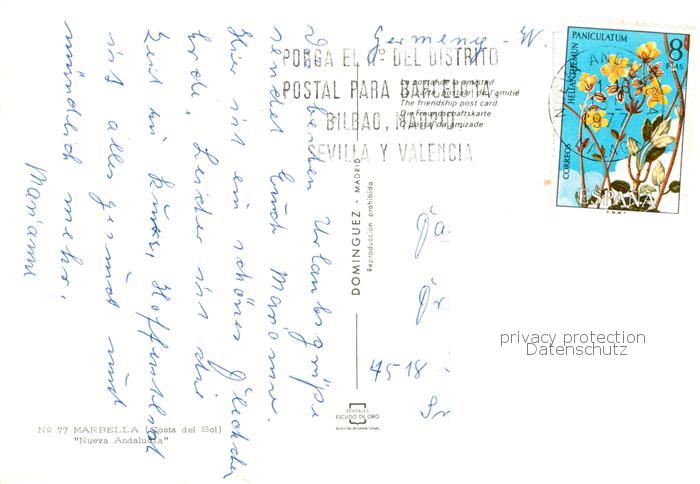 Die besten Urlaubsgrüße
sendet Euch Marianne.
Hier ist ein schönes Fleckchen
Erde. Leider ist die
Zeit zu kurz. Hoffentlich
ist alles gesund und
mündlich mehr.
Marianne
Germany - W.
PORGA EL Nº DEL DISTRITO
POSTAL PARA BARCELONA
BILBAO, MADRID
SEVILLA Y VALENCIA
La postal de la amistad
La carte postale de l'amitié
The friendship post card
Die Freundschaftskarte
O postal da amizade
HELIANTHEMUN PANICULATUM
8
PTAS
CORREOS
ESPAÑA
F.N.M.T.
1977
DOMINGUEZ - MADRID
Reproducción prohibida
4518
privacy protection
Datenschutz
POSTALES
ESCUDO DE ORO
Nº 77 MARBELLA (Costa del Sol)
"Nueva Andalucía"